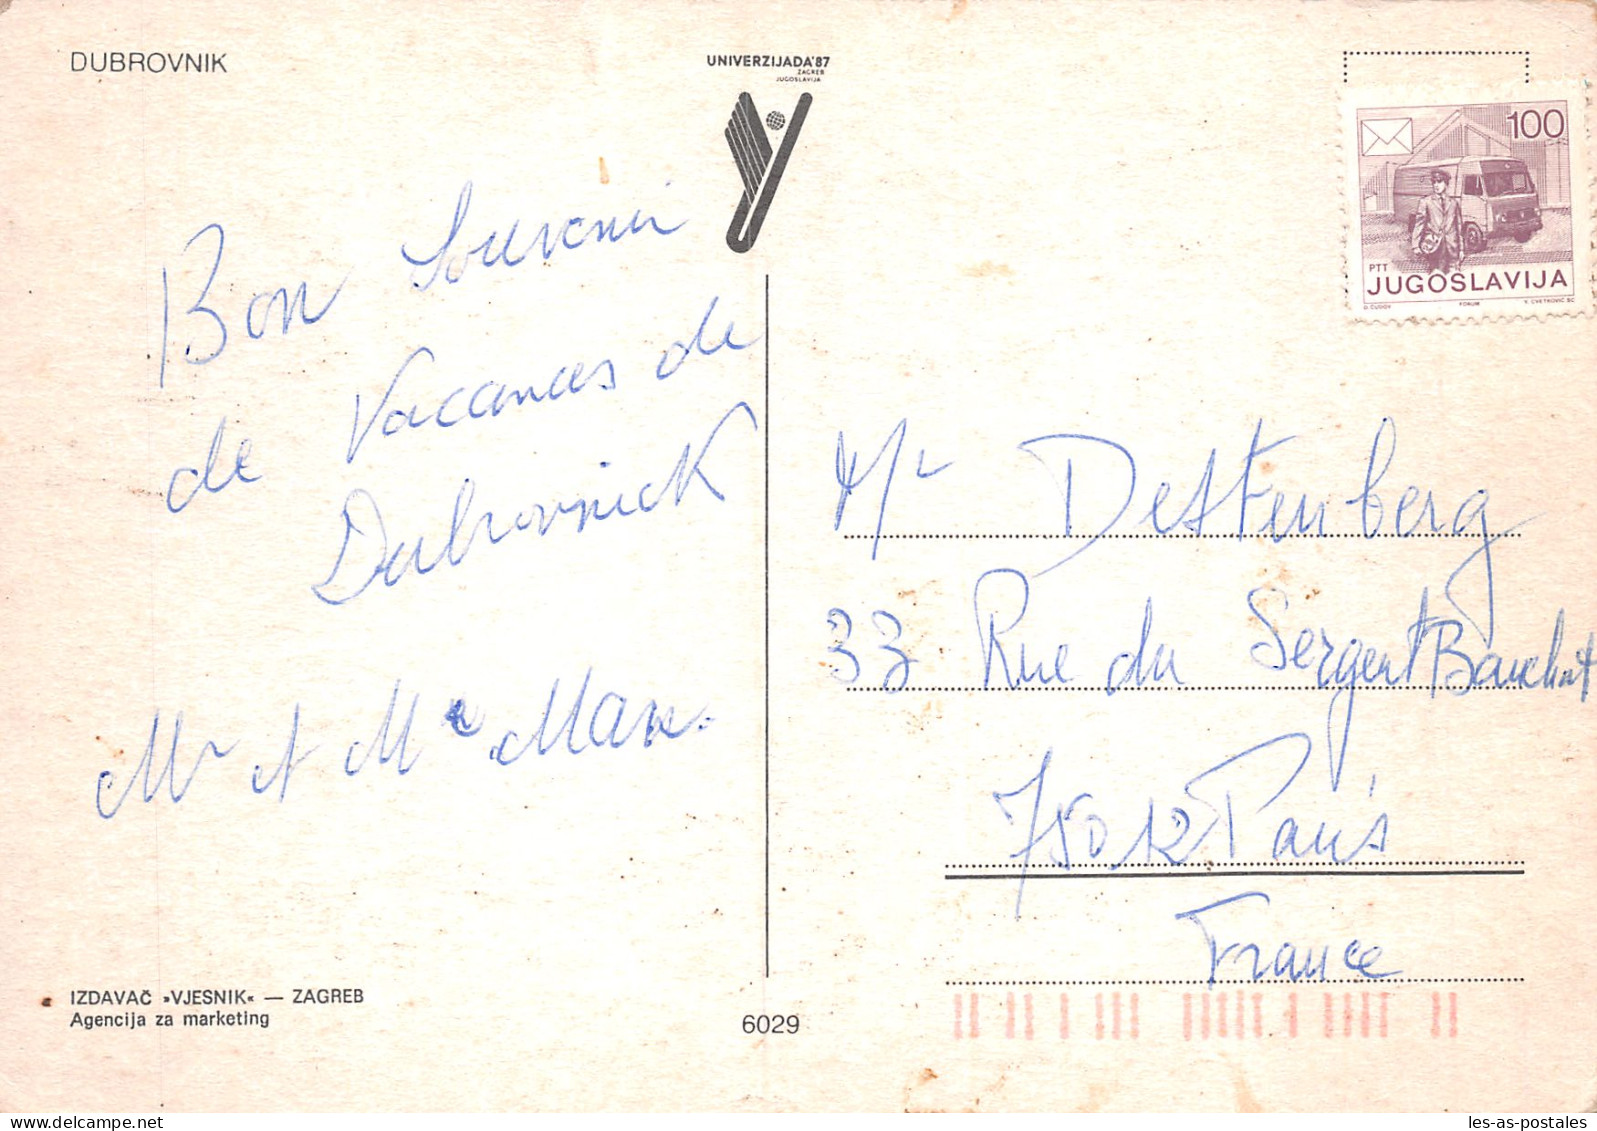 DUBROVNIK
UNIVERZIJADA'87
ZAGREB
JUGOSLAVIJA
100
PTT
JUGOSLAVIJA
FORUM
V. CVETKOVIĆ SC
Bon Souvenir
de Vacances de
Dubrovnick
Mr et Me
Mr Destenberg
33 Rue du Sergent Bauchat
75012 Paris
France
IZDAVAČ »VJESNIK« — ZAGREB
Agencija za marketing
6029
les-as-postales